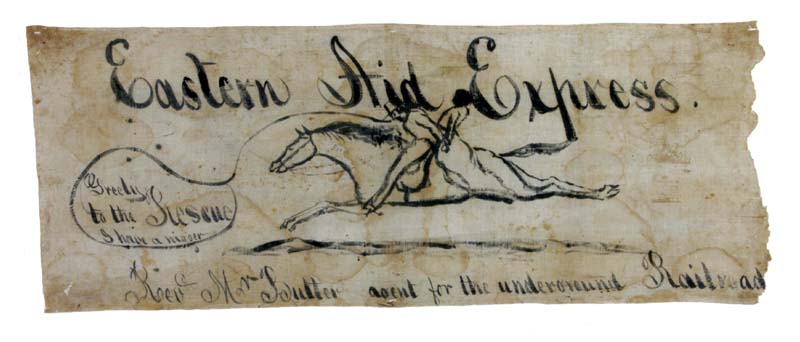 Eastern Aid Express.
Greely
to the Rescue
I have a niger
Rev.d Mr Butler agent for the underground Railroad